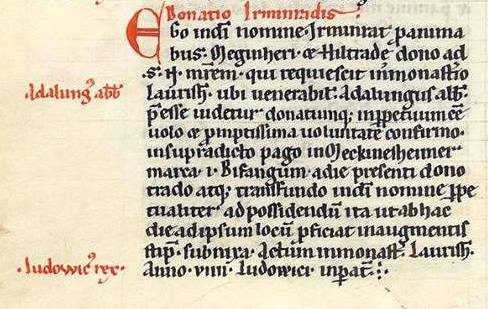 Donatio Irminradis.
Ego in dei nomine Irminrat p anima
bus. Meginheri. et Hiltrade dono ad
s. N. mrem. qui requiescit in monastio
Adalung' abb
Laurish. ubi venerabil. Adalungus abb.
preesse videtur donatumq; in ppetuum ee
volo et pmptissima voluntate confirmo.
in supradicto pago in Meckinesheimer
marca .i. Bifangum. a die presenti dono
trado atq; transfundo in di nomine ppe
tualiter ad possidendum ita ut ab hac
die ad ipsum locu pficiat in augmentis
stip. subnixa. Actum in monast. Laurish.
.Ludowic' rex.
Anno .viiii. Ludowici impat.